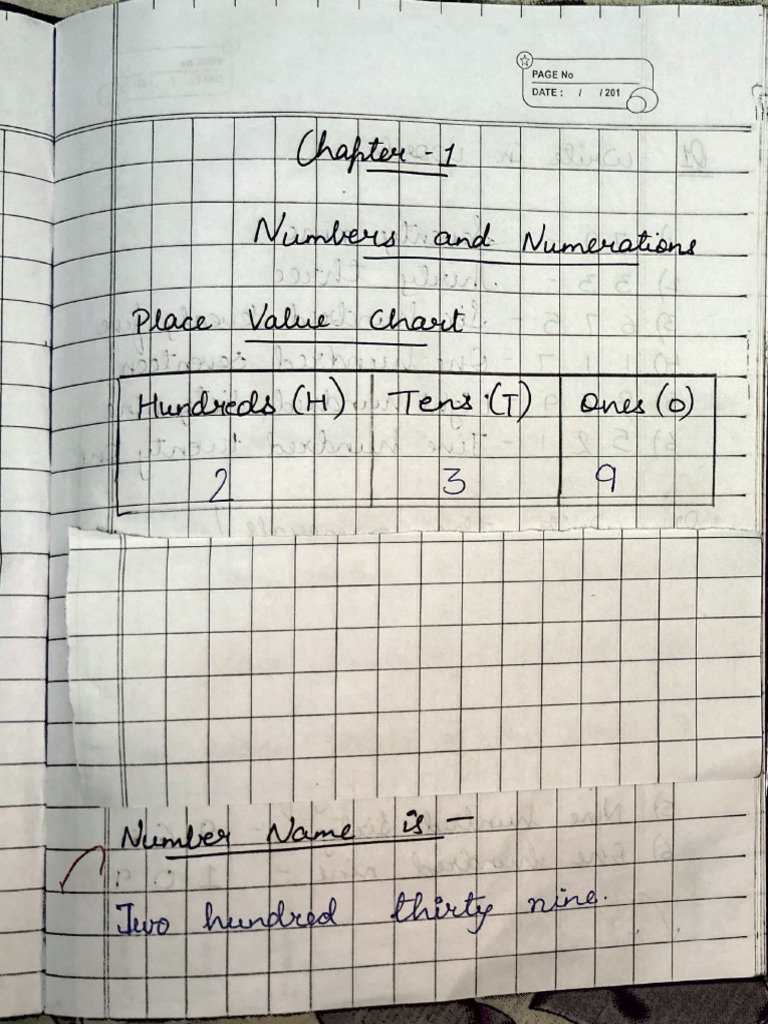 PAGE No
DATE : / /201
Chapter - 1
Numbers and Numerations
Place Value Chart
Hundreds (H) Tens (T) Ones (O)
2 3 9
Number Name is -
Two hundred thirty nine.